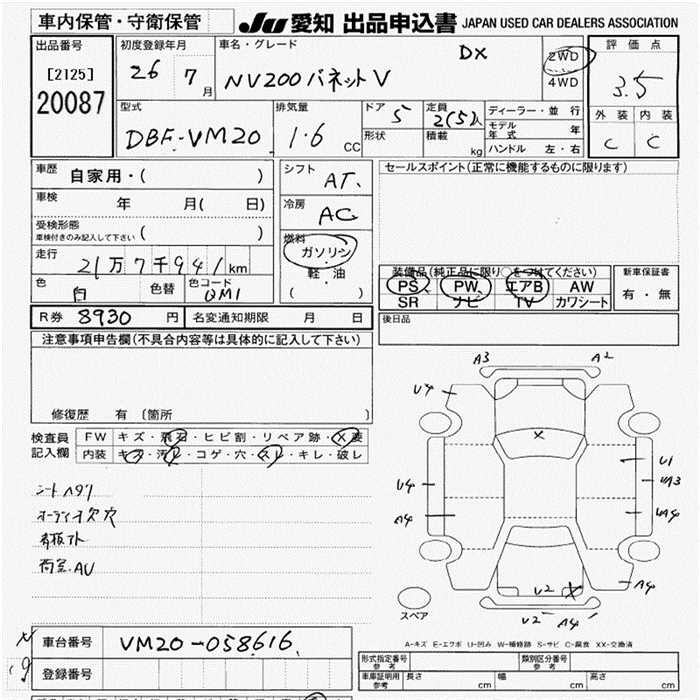 車内保管・守衛保管 JU 愛知 出品申込書 JAPAN USED CAR DEALERS ASSOCIATION
出品番号 初度登録年月 車名・グレード 評価点
[2125] 26 年 7 月 NV200バネットV DX 2WD 3.5
20087 4WD
型式 排気量 ドア 5 定員 2(5)人 ディーラー・並行 外装 内装
DBF-VM20 1.6 CC 形状 積載 kg モデル年式 年 C C
ハンドル 左・右
車歴 自家用・( ) シフト AT. セールスポイント(正常に機能するものに限ります)
車検 年 月( 日) 冷房 AC
受検形態 ( )
車検付きのみ記入して下さい
燃料 ガソリン
走行 21万7千941km 軽・油
装備品(純正品に限り○をつけてください) 新車保証書
色 白 色替 色コード QM1 ( )
PS PW エアB AW 有・無
SR ナビ TV カワシート
R券 8930 円 名変通知期限 月 日 後日品
注意事項申告欄(不具合内容等は具体的に記入して下さい)
修復歴 有 〔箇所 〕
検査員 FW キズ・飛石・ヒビ割・リペア跡・X要
記入欄 内装 キズ・汚レ・コゲ・穴・スレ・キレ・破レ
シートヘタリ
オーディオ欠穴
A3 A2
U4
X
U4 U1
A4 A4
U2 X
U2 A4
スペア
A-キズ E-エクボ U-凹み W-補修跡 S-サビ C-腐食 XX-交換済
荷室AU
車台番号 VM20-058616
登録番号
形式指定番号 参考 類別区分番号 参考
車庫証明用 参考 長さ cm 幅 cm 高さ cm